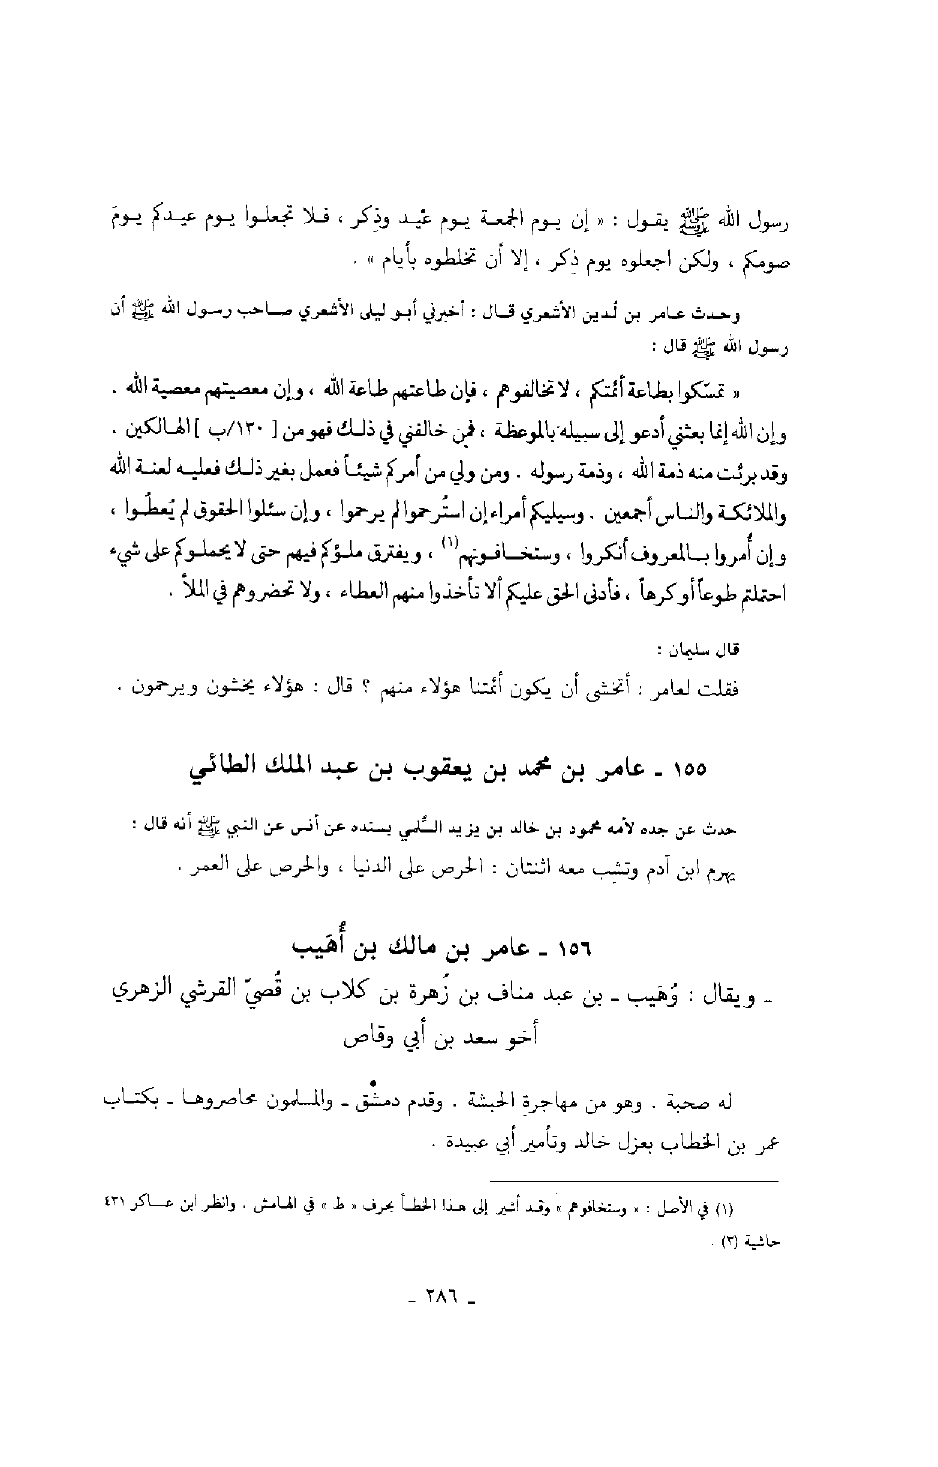 رسول الله ﷺ يقول : « إن يوم الجمعة يوم عيد وذكر ، فلا تجعلوا يوم عيدكم يومَ
صومكم ، ولكن اجعلوه يوم ذكر ، إلا أن تخلطوه بأيام » .
وحدث عامر بن لُدين الأشعري قال : أخبرني أبو ليلى الأشعري صاحب رسول الله ﷺ أن
رسول الله ﷺ قال :
« تمسّكوا بطاعة أئمتكم ، لا تخالفوهم ، فإن طاعتهم طاعة الله ، وإن معصيتهم معصية الله .
وإن الله إنما بعثني أدعو إلى سبيله بالموعظة ، فمن خالفني في ذلك فهو من [ ١٣٠/ب ] الهالكين .
وقد برئت منه ذمة الله ، وذمة رسوله . ومن ولي من أمركم شيئاً فعمل بغير ذلك فعليه لعنة الله
والملائكة والناس أجمعين . وسيليكم أمراء إن استُرحموا لم يرحموا ، وإن سئلوا الحقوق لم يُعطُوا ،
وإن أُمروا بالمعروف أنكروا ، وستخافونهم(١) ، ويفترق ملؤكم فيهم حتى لا يحملوكم على شيء
احتملتم طوعاً أو كرهاً ، فأدنى الحق عليكم ألا تأخذوا منهم العطاء ، ولا تحضروهم في الملأ .
قال سليمان :
فقلت لعامر : أتخشى أن يكون أئمتنا هؤلاء منهم ؟ قال : هؤلاء يخشون ويرحمون .
١٥٥ ـ عامر بن محمد بن يعقوب بن عبد الملك الطائي
حدث عن جده لأمه محمود بن خالد بن يزيد السُّلمي بسنده عن أنس عن النبي ﷺ أنه قال :
يهرم ابن آدم وتشب معه اثنتان : الحرص على الدنيا ، والحرص على العمر .
١٥٦ ـ عامر بن مالك بن أُهَيب
ـ ويقال : وُهَيب ـ بن عبد مناف بن زُهرة بن كلاب بن قُصيّ القرشي الزهري
أخو سعد بن أبي وقاص
له صحبة . وهو من مهاجرة الحبشة . وقدم دمشق ـ والمسلمون محاصروها ـ بكتاب
عمر بن الخطاب بعزل خالد وتأمير أبي عبيدة .
(١) في الأصل : « وستخافوهم » وقد أشير إلى هذا الخطأ بحرف « ط » في الهامش . وانظر ابن عساكر ٤٣١
حاشية (٣) .
ـ ٢٨٦ ـ